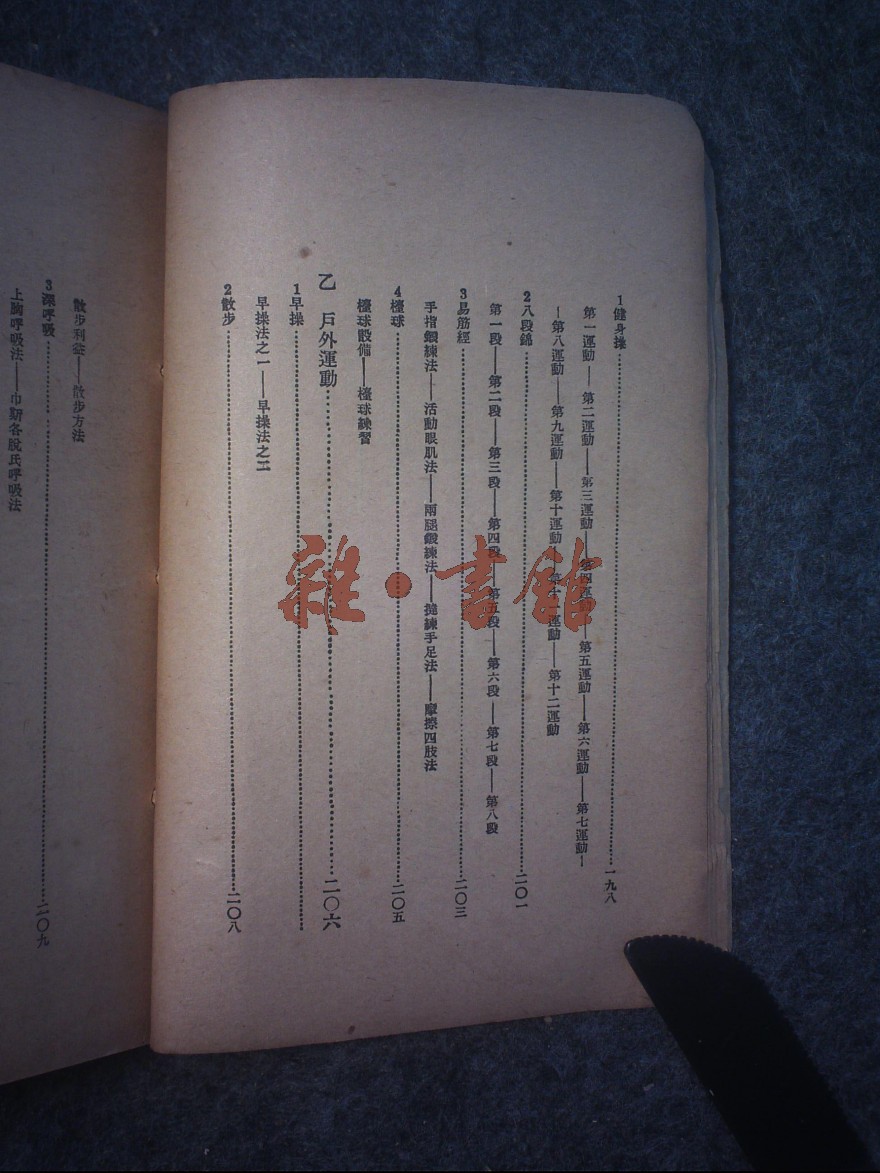 1健身操……一九八
第一運動——第二運動——第三運動——第四運動——第五運動——第六運動——第七運動—
—第八運動——第九運動——第十運動——第十一運動——第十二運動
2八段錦……二〇一
第一段——第二段——第三段——第四段——第五段——第六段——第七段——第八段
3易筋經……二〇三
手指鍛練法——活動眼肌法——兩腿鍛練法——搓練手足法——摩擦四肢法
4檯球……二〇五
檯球設備——檯球練習
乙 戶外運動……二〇六
1早操……
早操法之一——早操法之二
2散步……二〇八
散步利益——散步方法
3深呼吸……二〇九
上胸呼吸法——巾斯各脫氏呼吸法
雜·書館